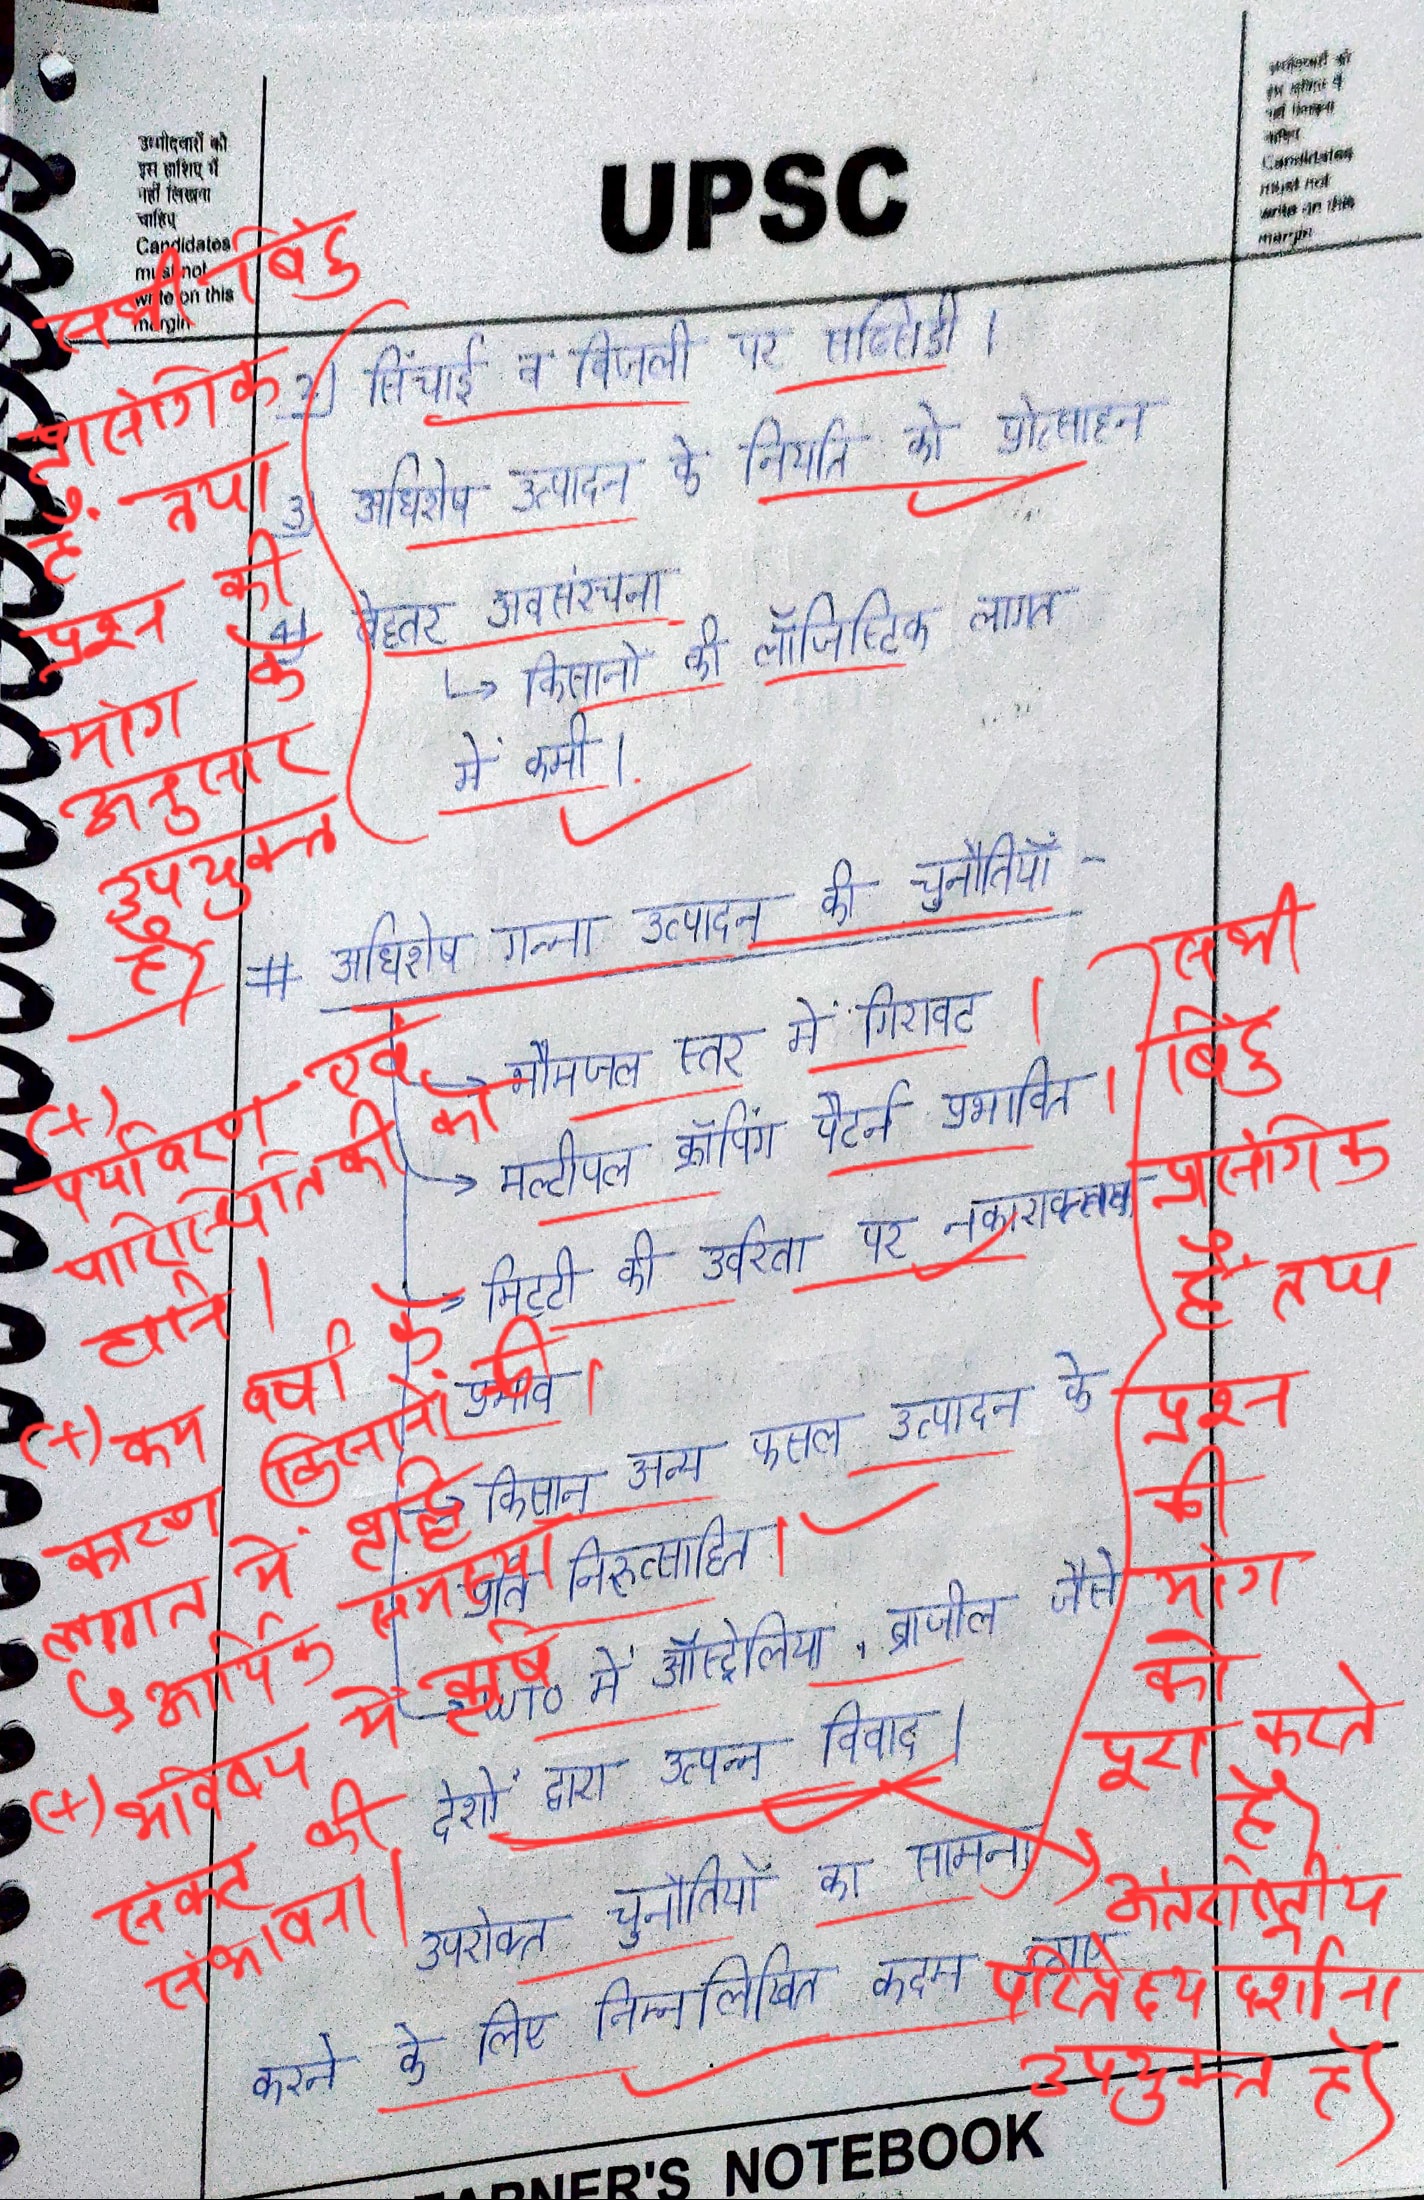 उम्मीदवारों को
इस हाशिए में
नहीं लिखना
चाहिए
Candidates
must not
write on this
margin
UPSC
उम्मीदवारों को
इस हाशिए में
नहीं लिखना
चाहिए
Candidates
must not
write on this
margin
सभी बिंदु
प्रासंगिक
हैं तथा
प्रश्न की
मांग के
अनुसार
उपयुक्त
है।
2) सिंचाई व बिजली पर सब्सिडी।
3) अधिशेष उत्पादन के निर्यात को प्रोत्साहन
4) बेहतर अवसंरचना
↳ किसानों की लॉजिस्टिक लागत
में कमी।
# अधिशेष गन्ना उत्पादन की चुनौतियाँ -
→ भौमजल स्तर में गिरावट।
→ मल्टीपल क्रॉपिंग पैटर्न प्रभावित।
→ मिट्टी की उर्वरता पर नकारात्मक
प्रभाव।
→ किसान अन्य फसल उत्पादन के
प्रति निरुत्साहित।
→ WTO में ऑस्ट्रेलिया, ब्राजील जैसे
देशों द्वारा उत्पन्न विवाद।
उपरोक्त चुनौतियों का सामना
करने के लिए निम्नलिखित कदम
(+)
पर्यावरण एवं
पारिस्थितिकी को
हानि।
(+) कम वर्षा के
कारण किसानों की
लागत में वृद्धि
↳ आर्थिक समस्या।
(+) भविष्य में कृषि
संकट की
संभावना।
सभी
बिंदु
प्रासंगिक
हैं तथा
प्रश्न
की
मांग
को
पूरा करते
है।
अंतर्राष्ट्रीय
परिप्रेक्ष्य दर्शाना
उपयुक्त है।
LEARNER'S NOTEBOOK